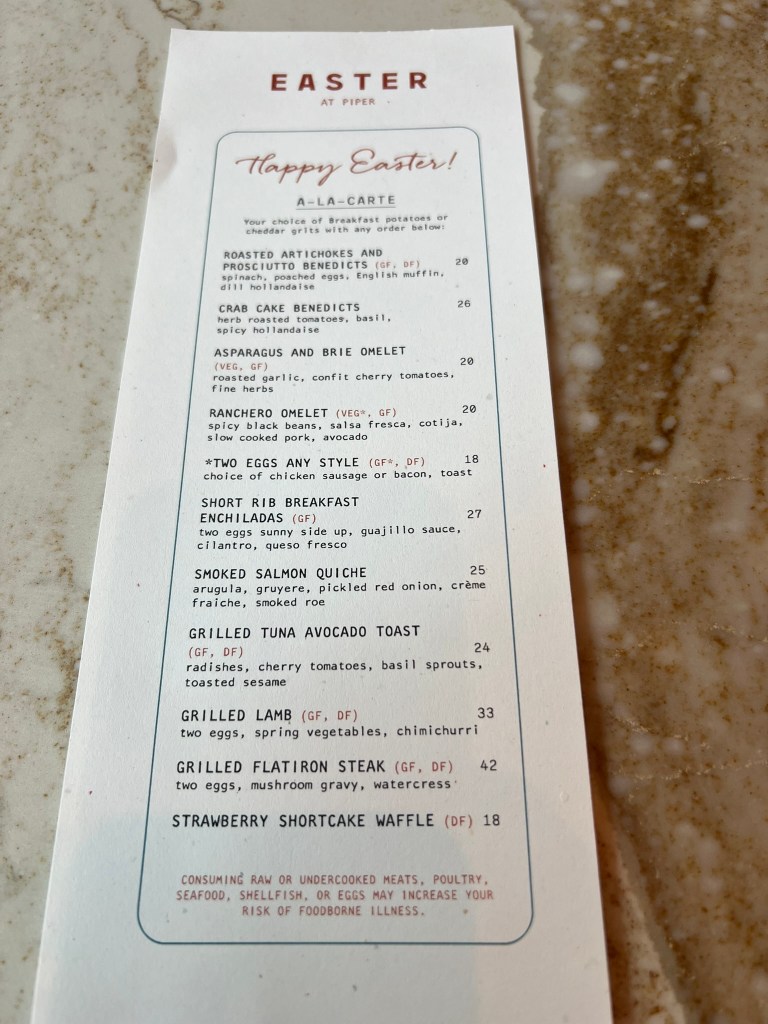 EASTER
AT PIPER
Happy Easter!
A-LA-CARTE
Your choice of Breakfast potatoes or
cheddar grits with any order below:
ROASTED ARTICHOKES AND
PROSCIUTTO BENEDICTS (GF, DF) 20
spinach, poached eggs, English muffin,
dill hollandaise
CRAB CAKE BENEDICTS 26
herb roasted tomatoes, basil,
spicy hollandaise
ASPARAGUS AND BRIE OMELET
(VEG, GF) 20
roasted garlic, confit cherry tomatoes,
fine herbs
RANCHERO OMELET (VEG*, GF) 20
spicy black beans, salsa fresca, cotija,
slow cooked pork, avocado
*TWO EGGS ANY STYLE (GF*, DF) 18
choice of chicken sausage or bacon, toast
SHORT RIB BREAKFAST
ENCHILADAS (GF) 27
two eggs sunny side up, guajillo sauce,
cilantro, queso fresco
SMOKED SALMON QUICHE 25
arugula, gruyere, pickled red onion, crème
fraiche, smoked roe
GRILLED TUNA AVOCADO TOAST
(GF, DF) 24
radishes, cherry tomatoes, basil sprouts,
toasted sesame
GRILLED LAMB (GF, DF) 33
two eggs, spring vegetables, chimichurri
GRILLED FLATIRON STEAK (GF, DF) 42
two eggs, mushroom gravy, watercress
STRAWBERRY SHORTCAKE WAFFLE (DF) 18
CONSUMING RAW OR UNDERCOOKED MEATS, POULTRY,
SEAFOOD, SHELLFISH, OR EGGS MAY INCREASE YOUR
RISK OF FOODBORNE ILLNESS.